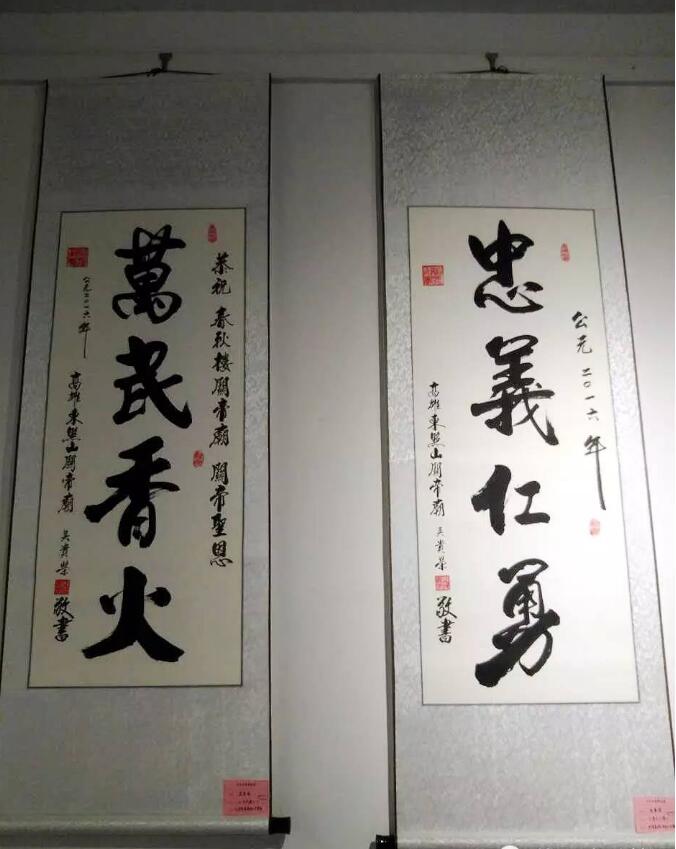 公元二〇一六年
忠義仁勇
高雄東照山關帝廟 吳貴榮 敬書
恭祝 春秋樓關帝廟 關帝聖恩
萬民香火
公元二〇一六年
高雄東照山關帝廟 吳貴榮 敬書